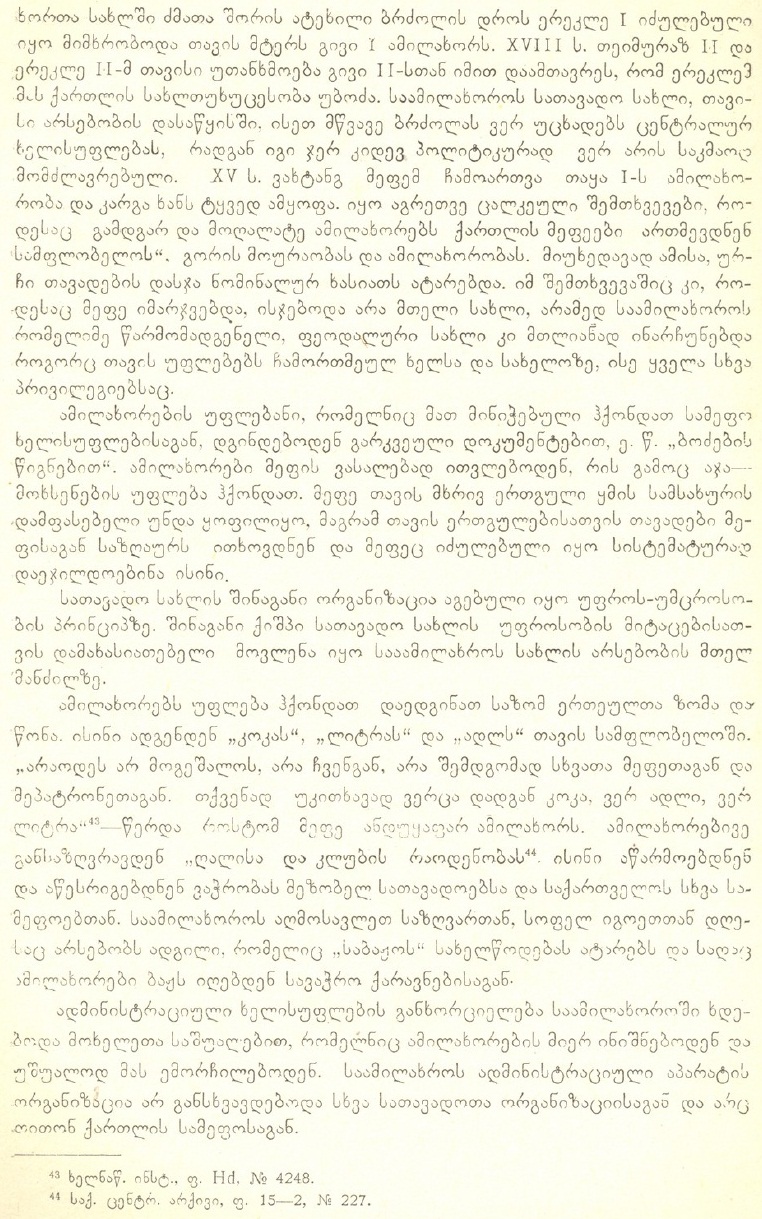 ხორთა სახლში ძმათა შორის ატეხილი ბრძოლის დროს ერეკლე I იძულებული
იყო მიმხრობოდა თავის მტერს გივი I ამილახორს. XVIII ს. თეიმურაზ II და
ერეკლე II-მ თავისი უთანხმოება გივი II-სთან იმით დაამთავრეს, რომ ერეკლემ
მას ქართლის სახლთუხუცესობა უბოძა. საამილახოროს სათავადო სახლი, თავი-
სი არსებობის დასაწყისში, ისეთ მწვავე ბრძოლას ვერ უცხადებს ცენტრალურ
ხელისუფლებას, რადგან იგი ჯერ კიდევ პოლიტიკურად ვერ არის საკმაოდ
მომძლავრებული. XV ს. ვახტანგ მეფემ ჩამოართვა თაყა I-ს ამილახო-
რობა და კარგა ხანს ტყვედ ამყოფა. იყო აგრეთვე ცალკეული შემთხვევები, რო-
დესაც გამდგარ და მოღალატე ამილახორებს ქართლის მეფეები ართმევდნენ
სამფლობელოს“, გორის მოურაობას და ამილახორობას. მიუხედავად ამისა, ურ-
ჩი თავადების დასჯა ნომინალურ ხასიათს ატარებდა. იმ შემთხვევაშიც კი, რო-
დესაც მეფე იმარჯვებდა, ისჯებოდა არა მთელი სახლი, არამედ საამილახოროს
რომელიმე წარმომადგენელი, ფეოდალური სახლი კი მთლიანად ინარჩუნებდა
როგორც თავის უფლებებს ჩამორთმეულ ხელსა და სახელოზე, ისე ყველა სხვა
პრივილეგიებსაც.
ამილახორების უფლებანი, რომელნიც მათ მინიჭებული ჰქონდათ სამეფო
ხელისუფლებისაგან, დგინდებოდენ გარკვეული დოკუმენტებით, ე. წ. „ბოძების
წიგნებით“. ამილახორები მეფის ვასალებად ითვლებოდენ, რის გამოც აჯა—
მოხსენების უფლება ჰქონდათ. მეფე თავის მხრივ ერთგული ყმის სამსახურის
დამფასებელი უნდა ყოფილიყო, მაგრამ თავის ერთგულებისათვის თავადები მე-
ფისაგან საზღაურს ითხოვდნენ და მეფეც იძულებული იყო სისტემატურად
დაეჯილდოებინა ისინი.
სათავადო სახლის შინაგანი ორგანიზაცია აგებული იყო უფროს-უმცროსო-
ბის პრინციპზე. შინაგანი ქიშპი სათავადო სახლის უფროსობის მიტაცებისათ-
ვის დამახასიათებელი მოვლენა იყო სააამილახროს სახლის არსებობის მთელ
მანძილზე.
ამილახორებს უფლება ჰქონდათ დაედგინათ საზომ ერთეულთა ზომა და
წონა. ისინი ადგენდენ „კოკას“, „ლიტრას“ და „ადლს“ თავის სამფლობელოში.
„არაოდეს არ მოგეშალოს, არა ჩვენგან, არა შემდგომად სხვათა მეფეთაგან და
მეპატრონეთაგან. თქვენად უკითხავად ვერცა დადგან კოკა, ვერ ადლი, ვერ
ლიტრა“⁴³—წერდა როსტომ მეფე ანდუყაფარ ამილახორს. ამილახორებივე
განსაზღვრავდენ „ღალისა და კლუბის რაოდენობას⁴⁴. ისინი აწარმოებდნენ
და აწესრიგებდნენ ვაჭრობას მეზობელ სათავადოებსა და საქართველოს სხვა სა-
მეფოებთან. საამილახოროს აღმოსავლეთ საზღვართან, სოფელ იგოეთთან დღე-
საც არსებობს ადგილი, რომელიც „საბაჟოს“ სახელწოდებას ატარებს და სადაც
ამილახორები ბაჟს იღებდენ სავაჭრო ქარავნებისაგან.
ადმინისტრაციული ხელისუფლების განხორციელება საამილახოროში ხდე-
ბოდა მოხელეთა საშუალებით, რომელნიც ამილახორების მიერ ინიშნებოდენ და
უშუალოდ მას ემორჩილებოდენ. საამილახროს ადმინისტრაციული აპარატის
ორგანიზაცია არ განსხვავდებოდა სხვა სათავადოთა ორგანიზაციისაგან და არც
თითონ ქართლის სამეფოსაგან.
⁴³ ხელნაწ. ინსტ., ფ. Hd, № 4248.
⁴⁴ საქ. ცენტრ. არქივი, ფ. 15—2, № 227.